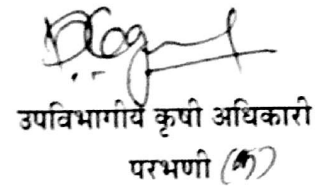 उपविभागीय कृषी अधिकारी
परभणी